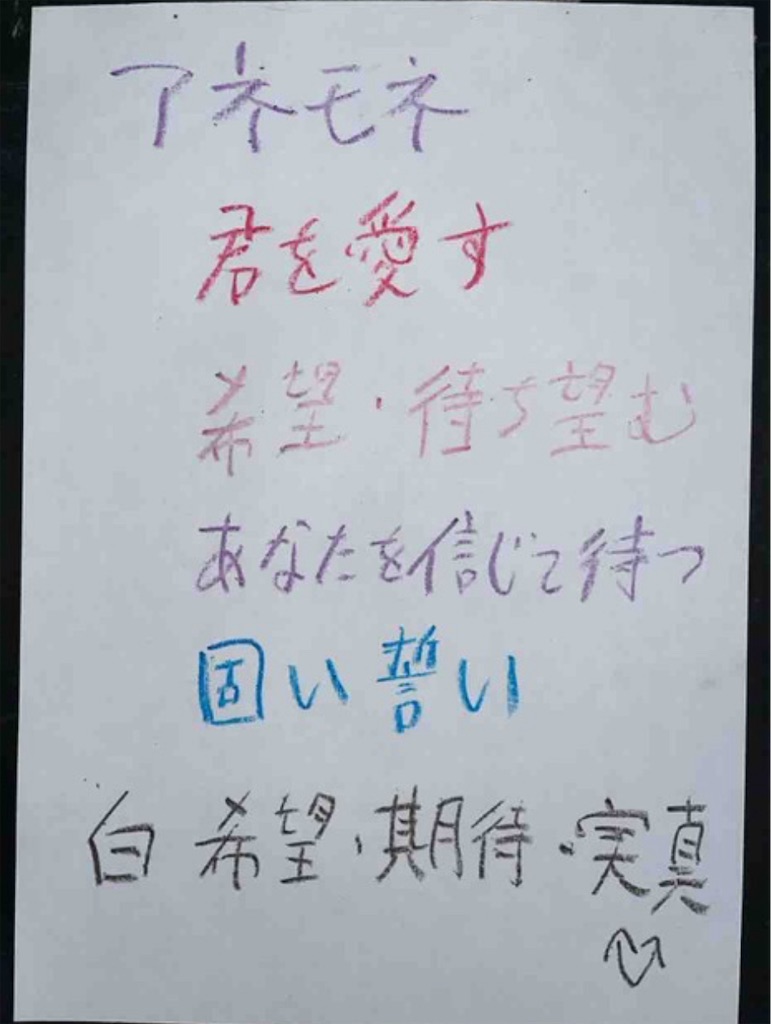 アネモネ
君を愛す
希望・待ち望む
あなたを信じて待つ
固い誓い
白 希望・期待・実真